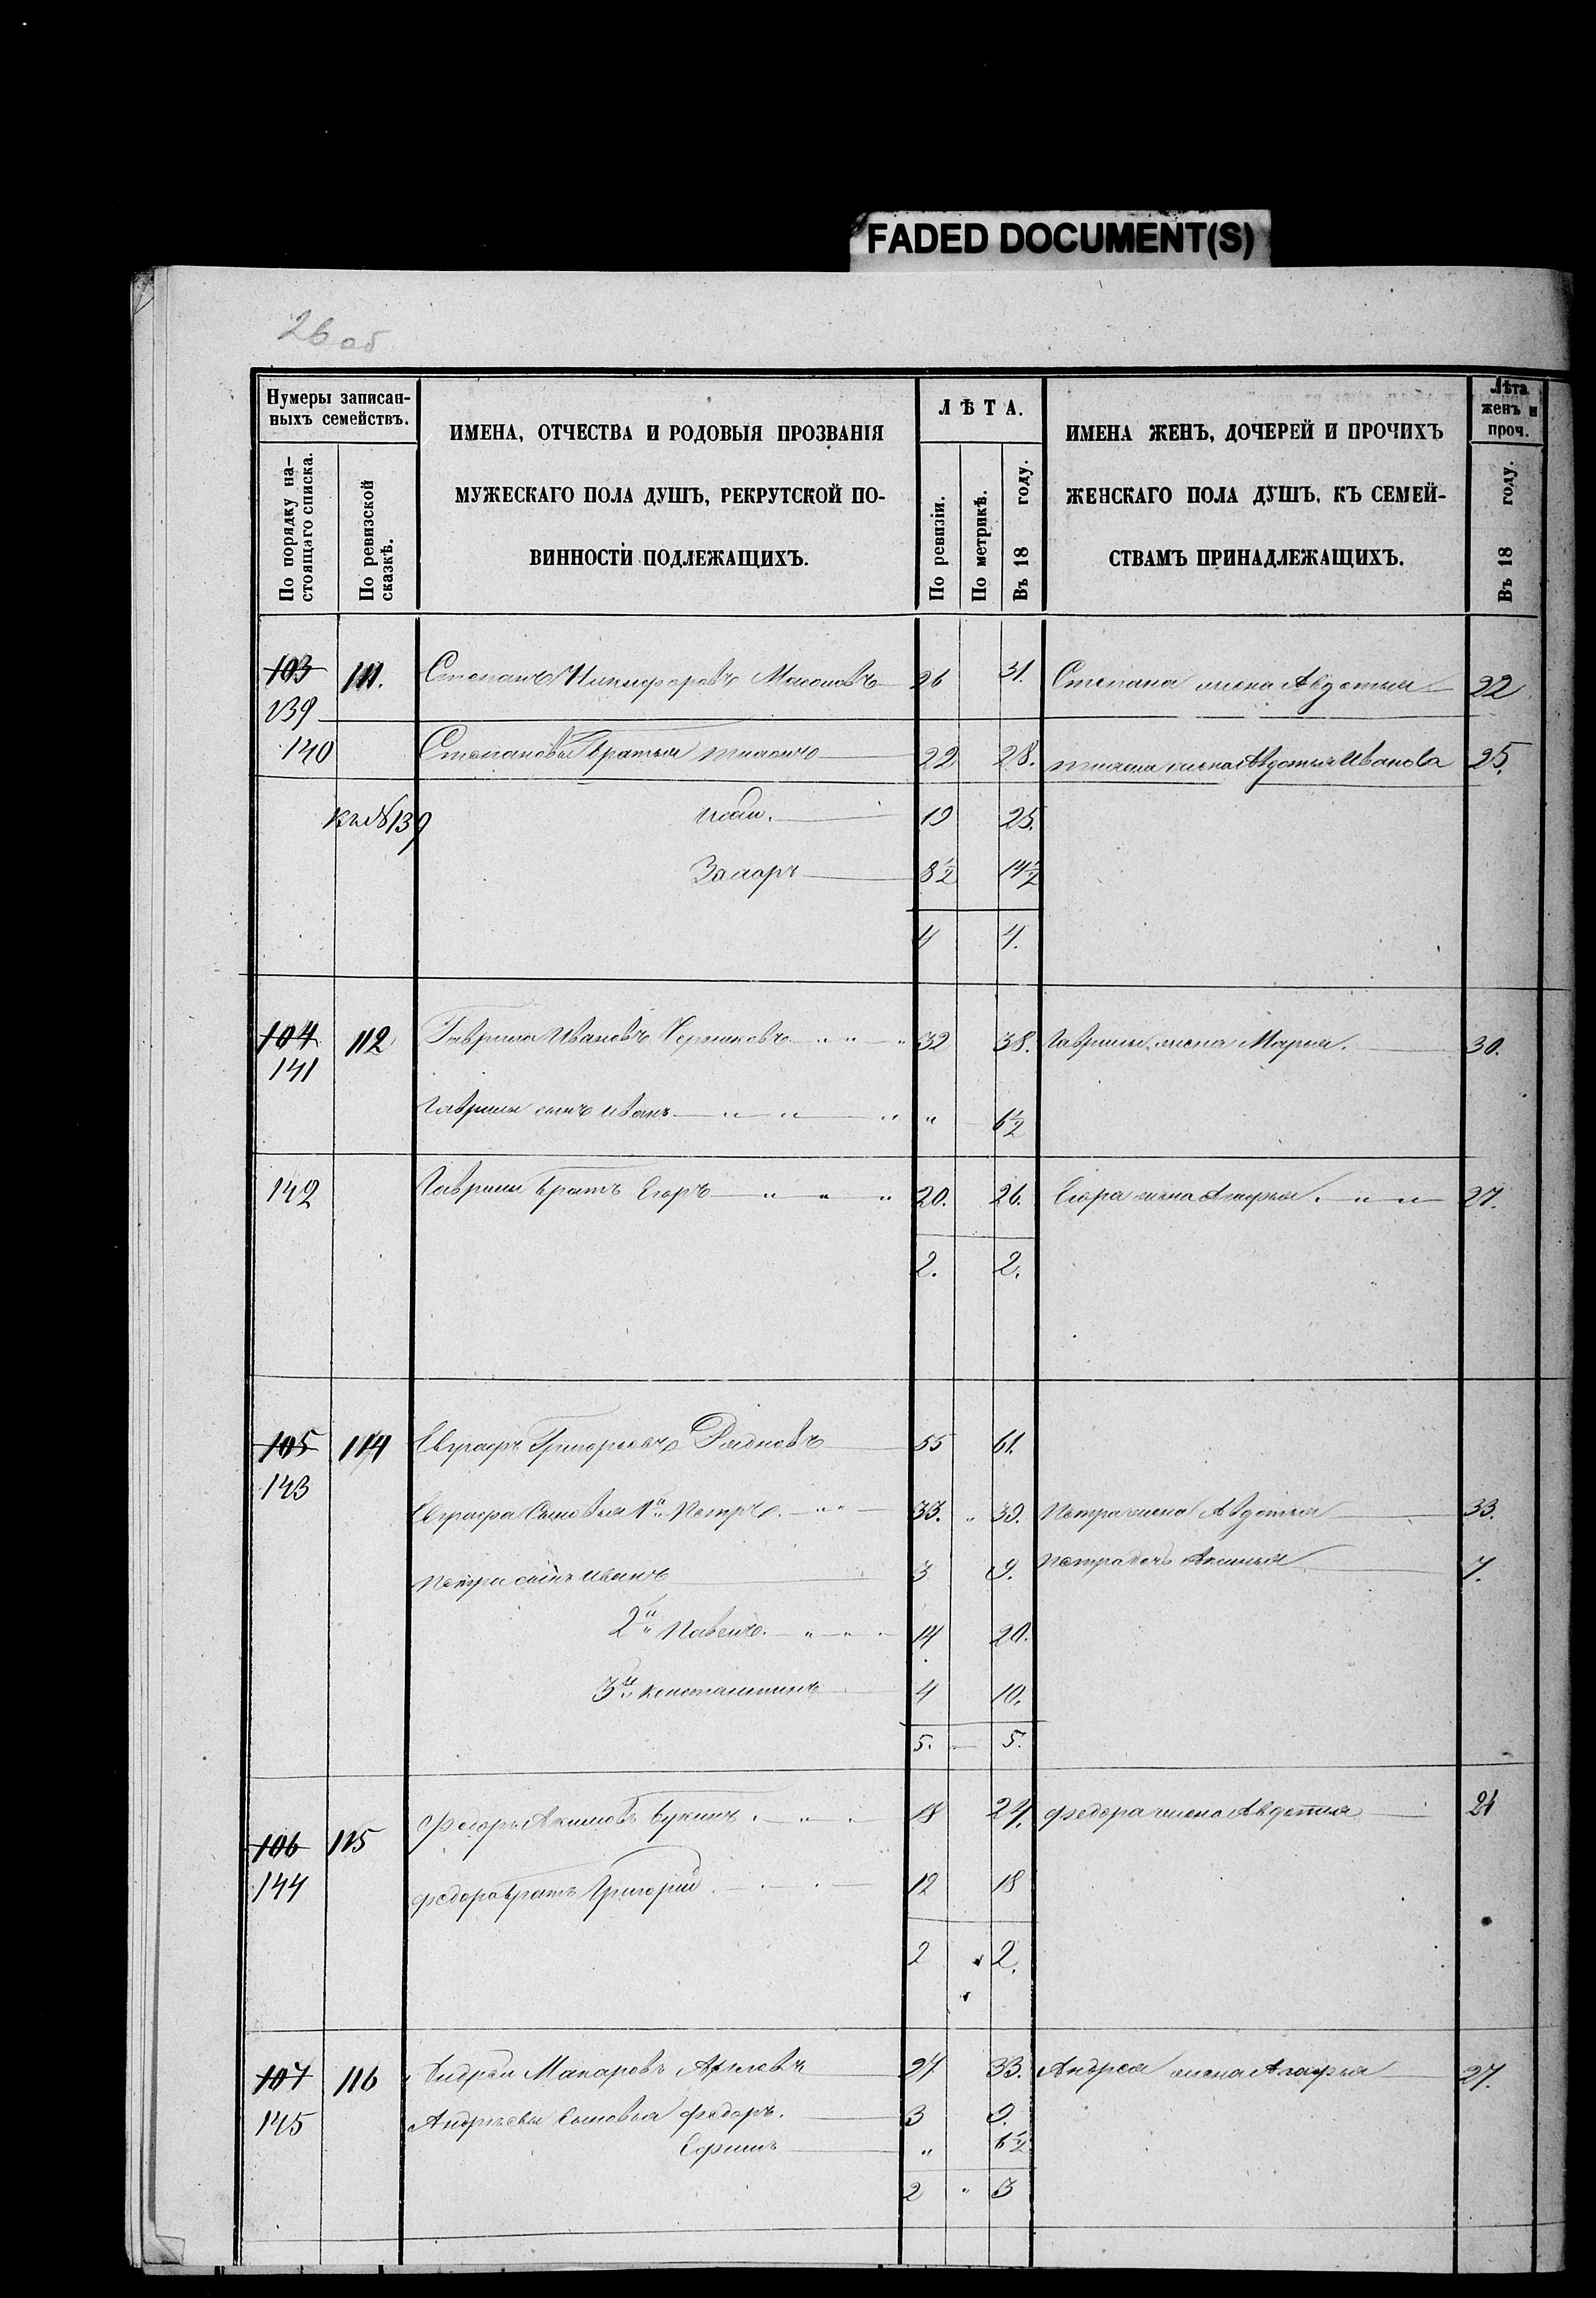 FADED DOCUMENT(S)
26 об
Нумеры записан-
ныхъ семействъ.
По порядку на-
стоящаго списка.
По ревизской
сказкѣ.
ИМЕНА, ОТЧЕСТВА И РОДОВЫЯ ПРОЗВАНІЯ
МУЖЕСКАГО ПОЛА ДУШЪ, РЕКРУТСКОЙ ПО-
ВИННОСТИ ПОДЛЕЖАЩИХЪ.
ЛѢТА.
По ревизіи.
По метрикѣ.
Въ 18 году.
ИМЕНА ЖЕНЪ, ДОЧЕРЕЙ И ПРОЧИХЪ
ЖЕНСКАГО ПОЛА ДУШЪ, КЪ СЕМЕЙ-
СТВАМЪ ПРИНАДЛЕЖАЩИХЪ.
Лѣта
женъ и
проч.
Въ 18 году.
103 111. Степанъ Никифоровъ 26 31. Степана жена Авдотья 22
139
140 Степановы братья 22 28. жена Авдотья Иванова 25.
къ №139 19 25.
Захаръ 8½ 14½
4 4.
104 112 Гаврила Ивановъ Черниковъ 32 38. Гаврилы жена Марья. 30.
141
Гаврилы сынъ Иванъ " 6½
142 Гаврилы братъ Егоръ 20. 26. Егора жена Агафья. 27.
2. 2.
105 114 Евграфъ Григорьевъ 55 61.
143
Евграфа Сыновья 1й Петръ. 33. " 39. Петра жена Авдотья 33.
Петра сынъ Иванъ 3 9. Петра дочь Аксинья 7.
2й Павелъ. 14 20.
3й Константинъ 4 10.
5. 5.
106 115 Федоръ Акимовъ Букинъ 18 24. Федора жена Авдотья 21
144 Федора братъ Григорій 12 18
2 2.
107 116 Андрей Макаровъ 27 33. Андрея жена Агафья 27.
145 Андреевы сыновья Федоръ. 3 9.
Ефимъ " 6½
2 " 3